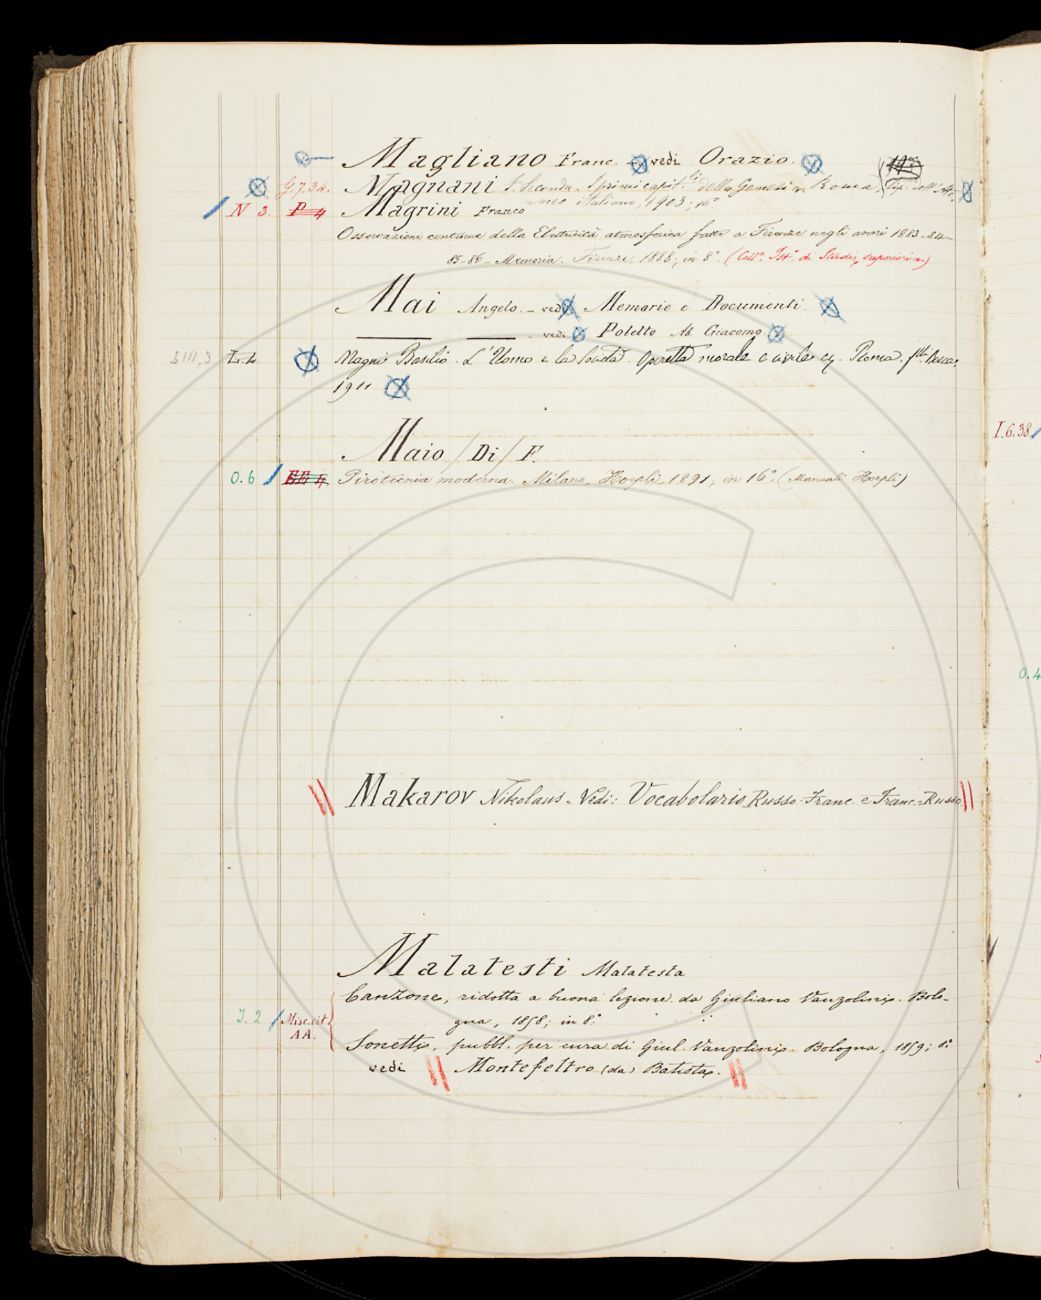 Magliano Franc. - vedi Orazio.
G.7.34. Magnani F. Secondo. I primi capit.li della Genesi. Roma, Tip. dell'At-
neo italiano, 1903; 16°
N 3 P 4 Magrini Franco
Osservazioni continue della Elettricità atmosferica fatte a Firenze negli anni 1883-84-
85-86 - Memoria. Firenze, 1888, in 8°. (Coll.e Ist.° di Studi superiori)
Mai Angelo. - vedi Memorie e Documenti.
vedi Poletto Ab. Giacomo.
L III, 3 L. L Magni Basilio - L'Uomo e la Società. Operetta morale e civile Roma, f.lli
1911
Maio (Di) F.
O. 6 EE 4 Pirotecnia moderna. Milano, Hoepli 1891; in 16°. (Manuali Hoepli)
Makarov Nikolaus - Vedi: Vocabolario Russo-Franc. e Franc.-Russo
Malatesti Malatesta
Canzone, ridotta a buona lezione da Giuliano Vanzolini. Bolo-
gna, 1858; in 8.°
J. 2 Misc. cit. AA.
Sonetti, pubbl. per cura di Giul. Vanzolini. Bologna, 1859; 8.°
vedi Montefeltro (da) Batista.
I.6.38
O.4